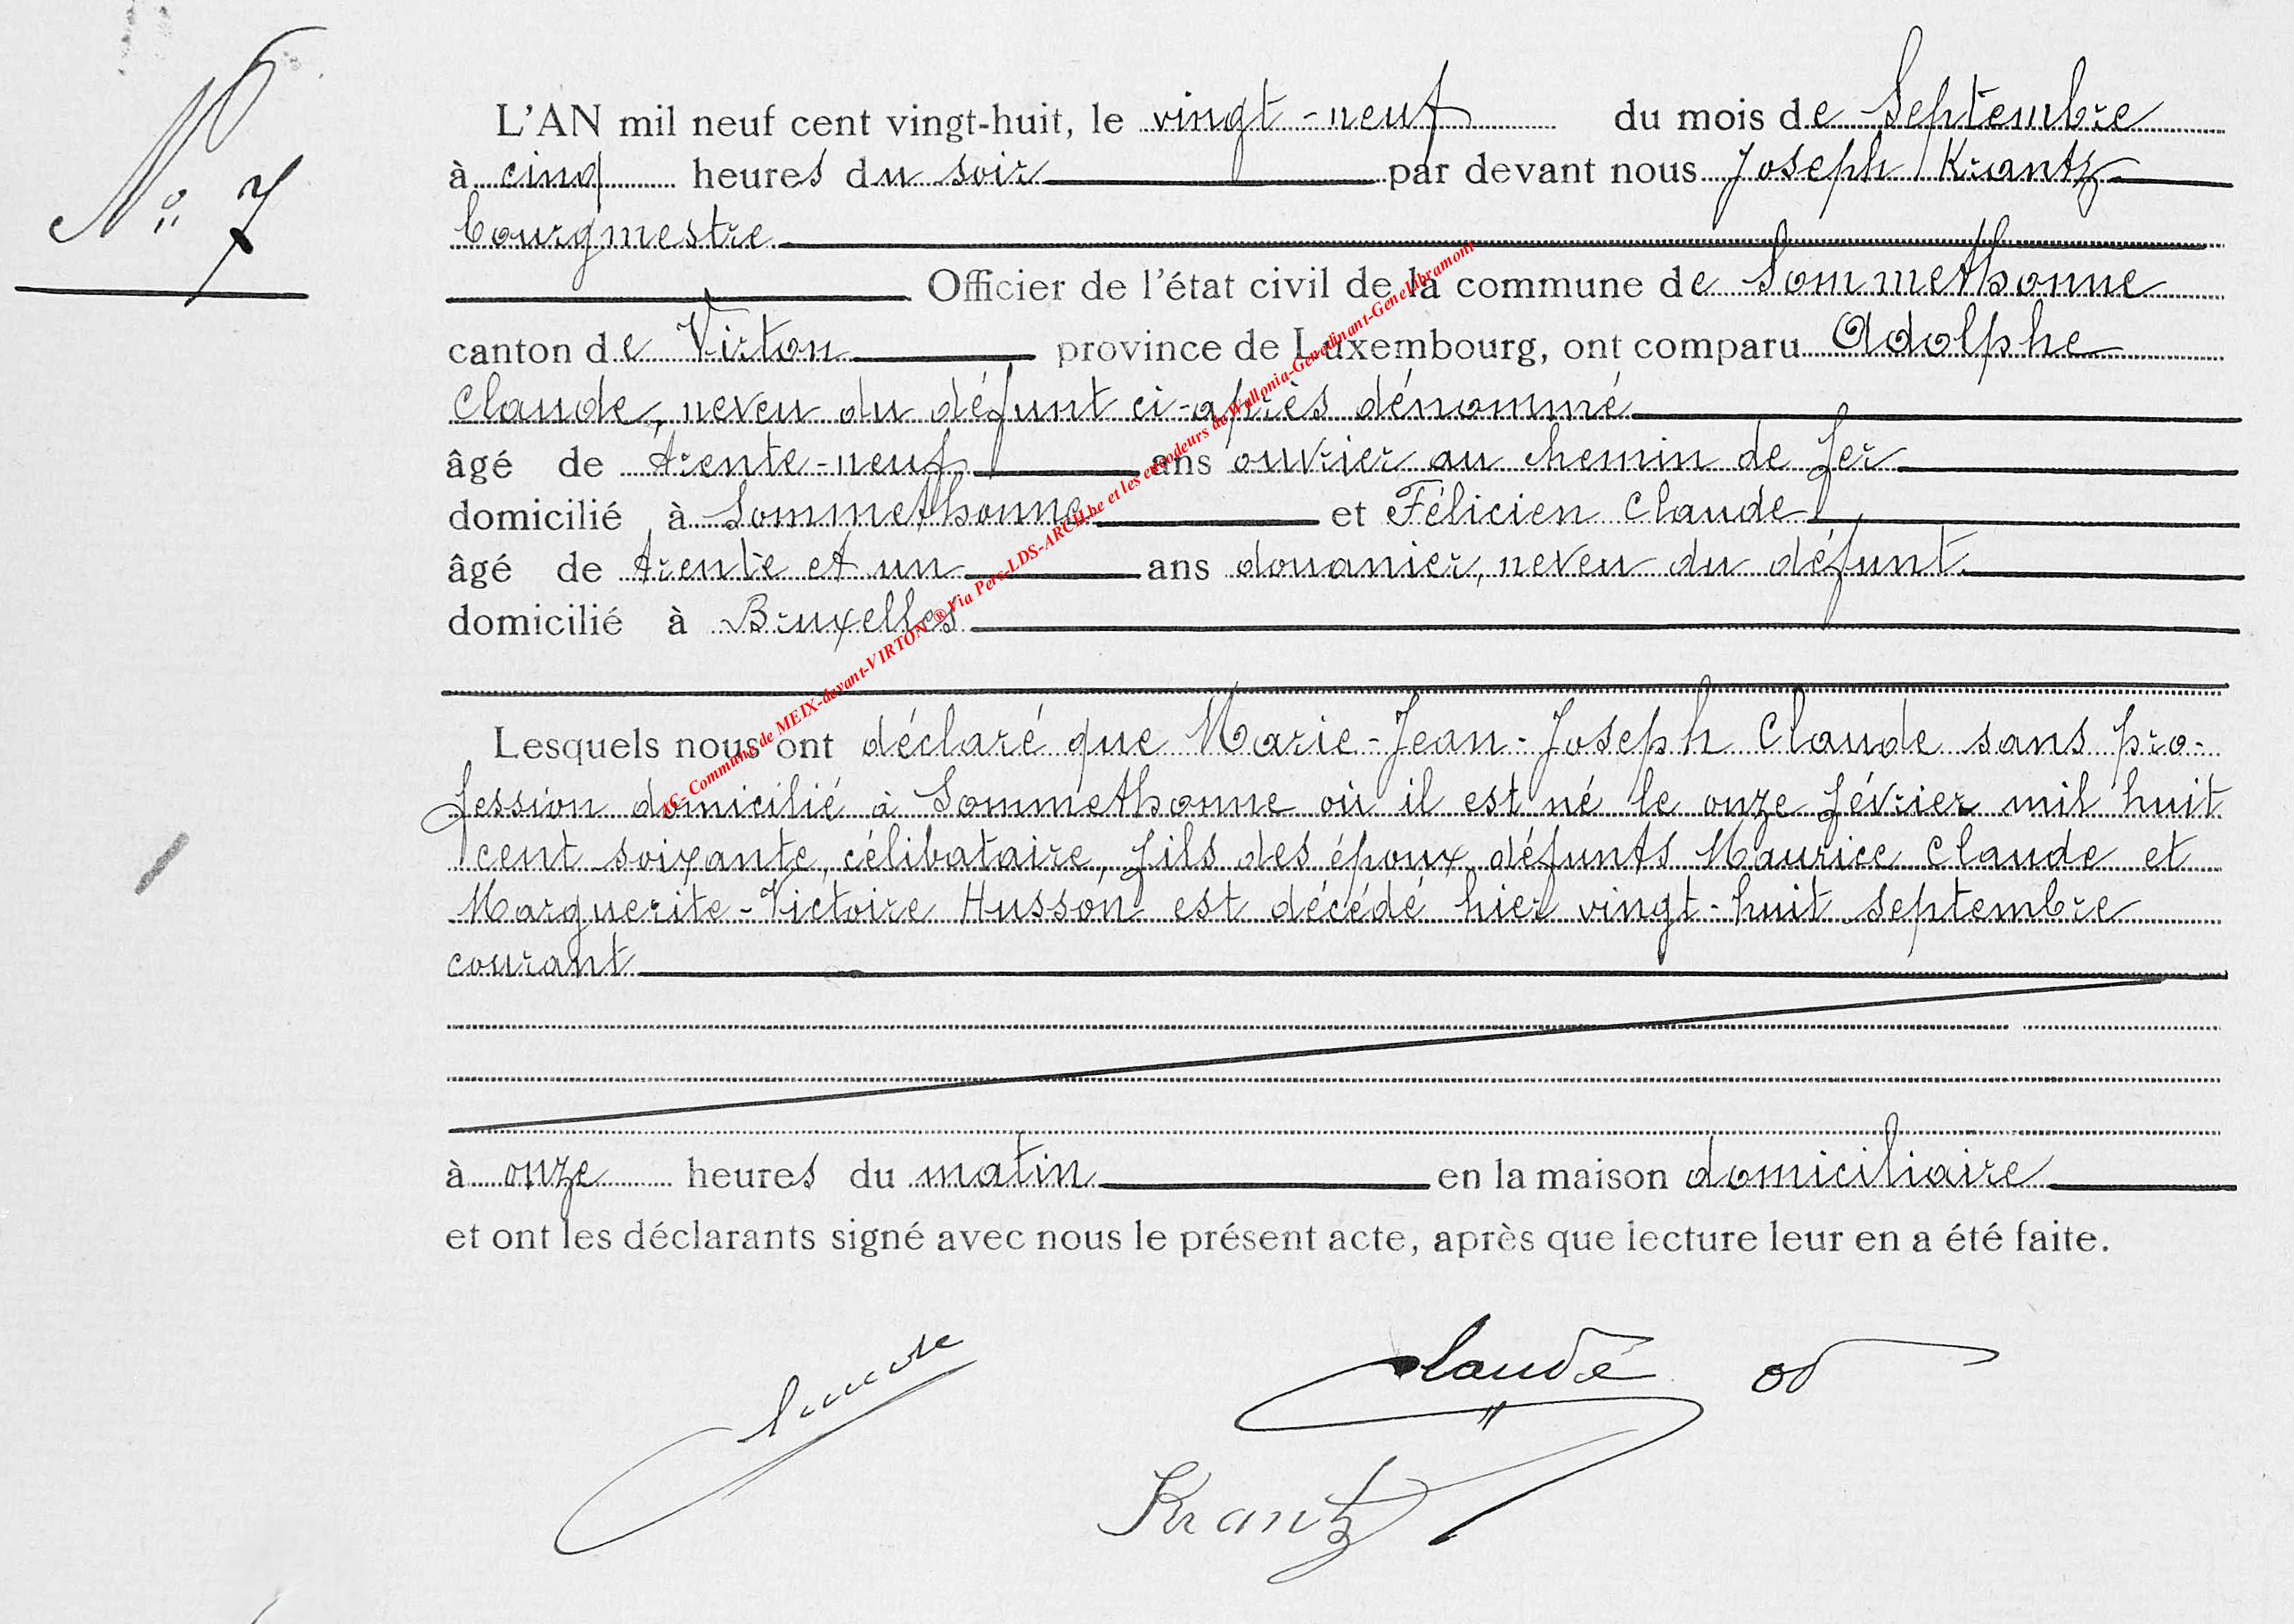 N° 7
L'AN mil neuf cent vingt-huit, le vingt-neuf du mois de Septembre
à cinq heures du soir par devant nous Joseph Krantz
bourgmestre
Officier de l'état civil de la commune de Sommethonne
canton de Virton province de Luxembourg, ont comparu Adolphe
Claude, neveu du défunt ci-après dénommé
âgé de trente-neuf ans ouvrier au chemin de fer
domicilié à Sommethonne et Félicien Claude
âgé de trente et un ans douanier, neveu du défunt
domicilié à Bruxelles
Lesquels nous ont déclaré que Marie-Jean-Joseph Claude sans pro-
fession domicilié à Sommethonne où il est né le onze février mil huit
cent soixante, célibataire, fils des époux défunts Maurice Claude et
Marguerite-Victoire Husson est décédé hier vingt-huit septembre
courant
à onze heures du matin en la maison domiciliaire
et ont les déclarants signé avec nous le présent acte, après que lecture leur en a été faite.
Claude
Claude
Krantz
AC- Commune de MEIX-devant-VIRTON ® Via Pers-LDS-ARCH.be et les encodeurs de Wallonia-Genedinant-GeneLibramont